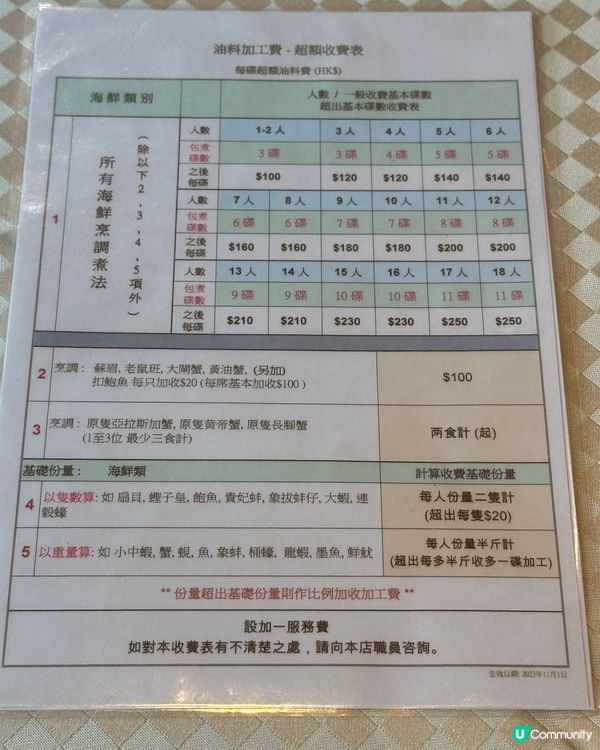 油料加工費 - 超額收費表
每碟超額油料費 (HK$)
海鮮類別
人數 / 一般收費基本碟數
超出基本碟數收費表
1
所有海鮮烹調煮法
(除以下2,3,4,5項外)
人數 1-2 人 3 人 4 人 5 人 6 人
包煮碟數 3 碟 3 碟 4 碟 5 碟 5 碟
之後每碟 $100 $120 $120 $140 $140
人數 7 人 8 人 9 人 10 人 11 人 12 人
包煮碟數 6 碟 6 碟 7 碟 7 碟 8 碟 8 碟
之後每碟 $160 $160 $180 $180 $200 $200
人數 13 人 14 人 15 人 16 人 17 人 18 人
包煮碟數 9 碟 9 碟 10 碟 10 碟 11 碟 11 碟
之後每碟 $210 $210 $230 $230 $250 $250
2 烹調 : 蘇眉, 老鼠班, 大閘蟹, 黃油蟹, (另加)
扣鮑魚 每只加收$20 (每席基本加收$100 )
$100
3 烹調 : 原隻亞拉斯加蟹, 原隻黃帝蟹, 原隻長腳蟹
(1至3位 最少三食計)
两食計 (起)
基礎份量 : 海鮮類 計算收費基礎份量
4 以隻數算: 如 扇貝, 蟶子皇, 鮑魚, 貴妃蚌, 象拔蚌仔, 大蝦, 連
殼蠔
每人份量二隻計
(超出每隻$20)
5 以重量算: 如 小中蝦, 蟹, 蜆, 魚, 象蚌, 桶蠔, 龍蝦, 墨魚, 鮮魷
每人份量半斤計
(超出每多半斤收多一碟加工)
** 份量超出基礎份量則作比例加收加工費 **
設加一服務費
如對本收費表有不清楚之處，請向本店職員咨詢。
生效日期: 2023年11月1日
U Community